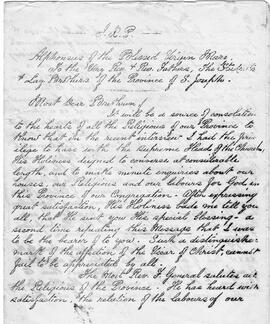 J. X. P.
Alphonsus of the Blessed Virgin Mary
To the Very Rev. & Rev. Fathers, The
& Lay Brothers of the Province of S. Joseph.
Most Dear Brethren,
It will be a source of consolation
to the hearts of all the Religious of our Province to
know that in the recent interview I had the privi-
lege to have with the Supreme Head of the Church,
His Holiness deigned to converse at considerable
length, and to make minute enquiries about our
houses, our Religious and our labours for God in
this Province of our Congregation. After expressing
great satisfaction, His Holiness bade me tell you
all, that He sent you His special blessing - a
second time repeating this Message that I was
to be the bearer of to you. Such a distinguished
mark of the affection of the Vicar of Christ, cannot
fail to be appreciated by all.
The Most Rev. F. General salutes all
the Religious of the Province. He has heard with
satisfaction, the relation of the labours of our